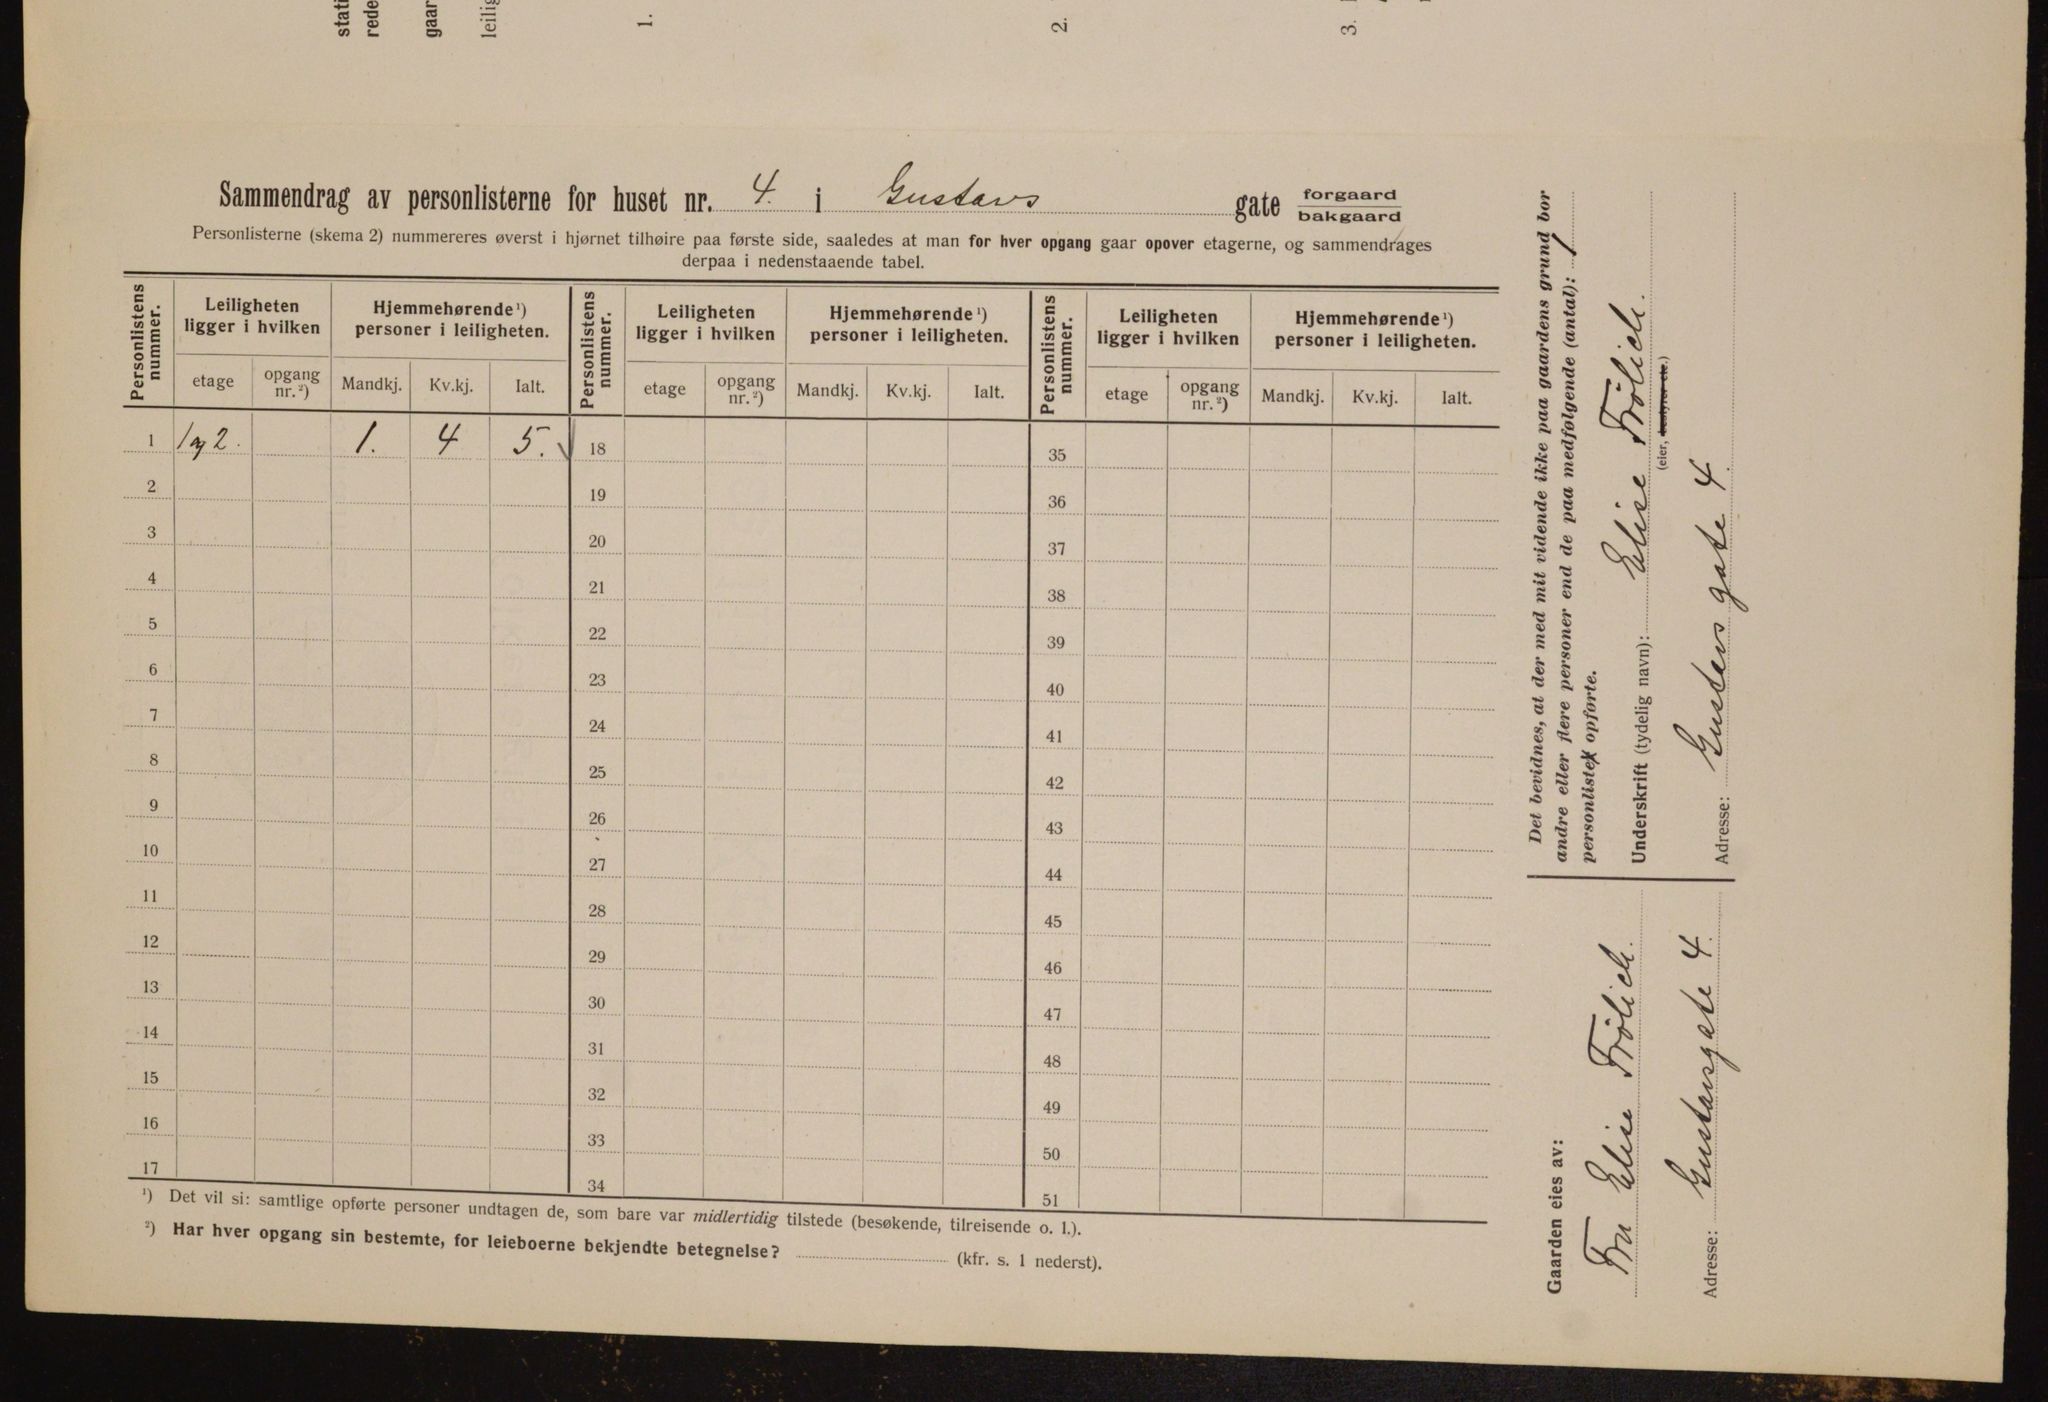 stati
rede
gaar
leilig
1.
2.
3.
Sammendrag av personlisterne for huset nr. 4. i Gustavs gate forgaard
bakgaard
Personlisterne (skema 2) nummereres øverst i hjørnet tilhøire paa første side, saaledes at man for hver opgang gaar opover etagerne, og sammendrages
derpaa i nedenstaaende tabel.
Personlistens nummer. Leiligheten ligger i hvilken Hjemmehørende¹) personer i leiligheten. Personlistens nummer. Leiligheten ligger i hvilken Hjemmehørende¹) personer i leiligheten. Personlistens nummer. Leiligheten ligger i hvilken Hjemmehørende¹) personer i leiligheten.
etage opgang nr.²) Mandkj. Kv.kj. Ialt. etage opgang nr.²) Mandkj. Kv.kj. Ialt. etage opgang nr.²) Mandkj. Kv.kj. Ialt.
1 1 og 2. 1. 4 5. 18 35
2 19 36
3 20 37
4 21 38
5 22 39
6 23 40
7 24 41
8 25 42
9 26 43
10 27 44
11 28 45
12 29 46
13 30 47
14 31 48
15 32 49
16 33 50
17 34 51
¹) Det vil si: samtlige opførte personer undtagen de, som bare var midlertidig tilstede (besøkende, tilreisende o. l.).
²) Har hver opgang sin bestemte, for leieboerne bekjendte betegnelse? (kfr. s. 1 nederst).
Det bevidnes, at der med mit vidende ikke paa gaardens grund bor
andre eller flere personer end de paa medfølgende (antal): 1
personlister opførte.
Underskrift (tydelig navn): Elise Frölich.
(eier, bestyrer etc.)
Adresse: Gustavs gate 4.
Gaarden eies av:
Fru Elise Frölich.
Adresse: Gustavsgate 4.